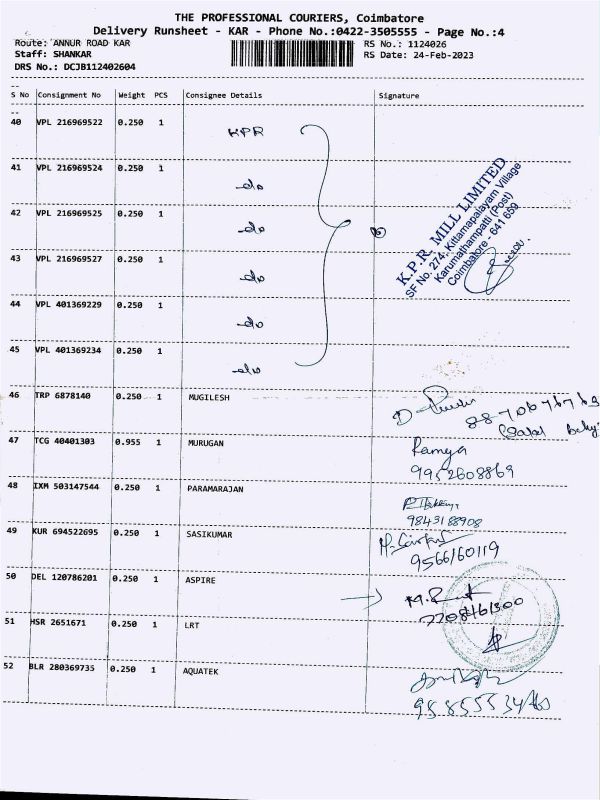 THE PROFESSIONAL COURIERS, Coimbatore
Delivery Runsheet - KAR - Phone No.:0422-3505555 - Page No.:4
Route: ANNUR ROAD KAR RS No.: 1124026
Staff: SHANKAR RS Date: 24-Feb-2023
DRS No.: DCJB112402604
S No Consignment No Weight PCS Consignee Details Signature
40 VPL 216969522 0.250 1 KPR
41 VPL 216969524 0.250 1 -do
42 VPL 216969525 0.250 1 -do
43 VPL 216969527 0.250 1 -do
44 VPL 401369229 0.250 1 -do
45 VPL 401369234 0.250 1 -do
K.P.R. MILL LIMITED
SF No. 274, Kittampalayam Village
Karumathampatti (Post)
Coimbatore - 641 659
46 TRP 6878140 0.250 1 MUGILESH
8870676769
47 TCG 40401303 0.955 1 MURUGAN Ramya
9952608869
48 IXM 503147544 0.250 1 PARAMARAJAN
9843188908
49 KUR 694522695 0.250 1 SASIKUMAR
9566160119
50 DEL 120786201 0.250 1 ASPIRE
7708461300
51 HSR 2651671 0.250 1 LRT
52 BLR 280369735 0.250 1 AQUATEK